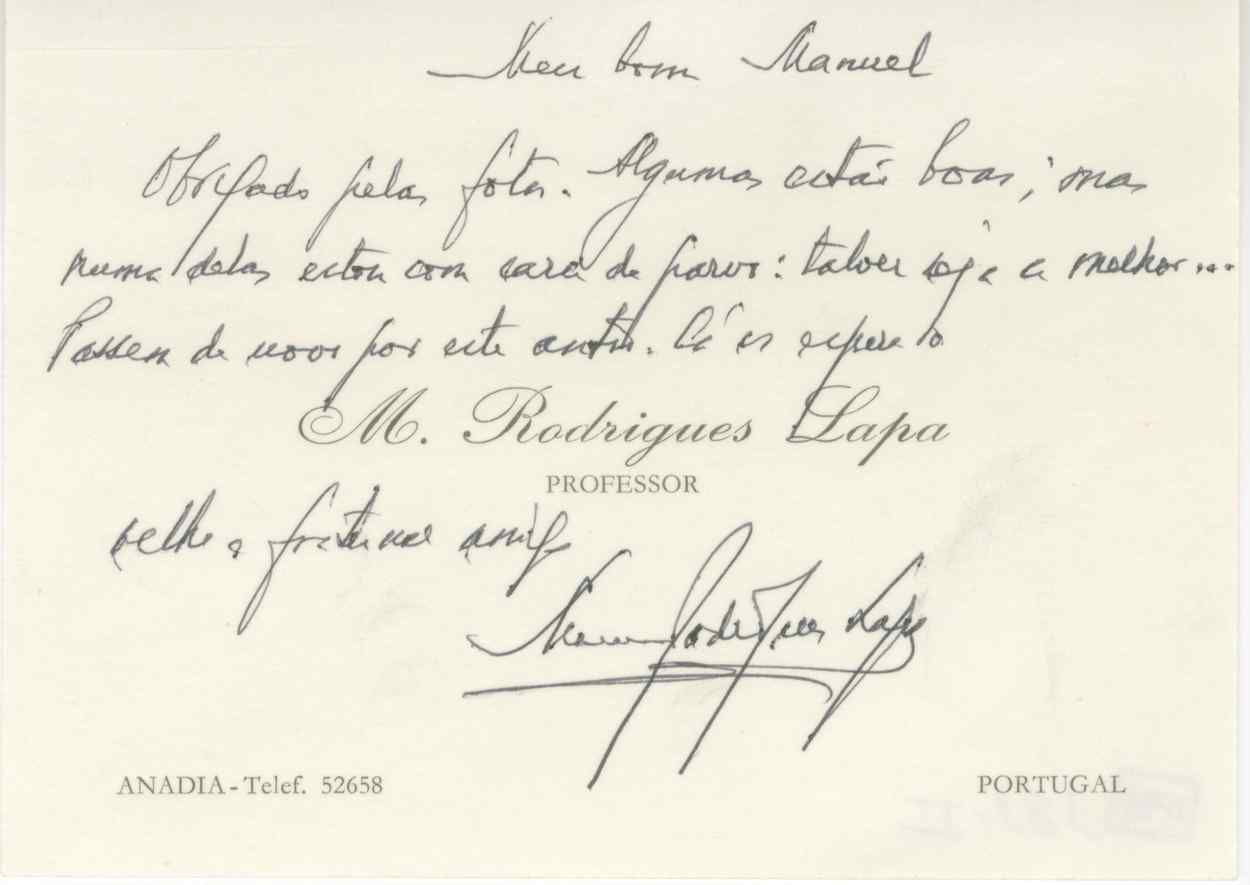 Meu bom Manuel
Obrigado pelas fotos. Algumas estão boas; mas
numa delas estou com cara de parvo: talvez seja a melhor...
Passem de novo por este antro. Cá os espera o
M. Rodrigues Lapa
PROFESSOR
velho e fraternal amigo
Manuel Rodrigues Lapa
ANADIA - Telef. 52658
PORTUGAL